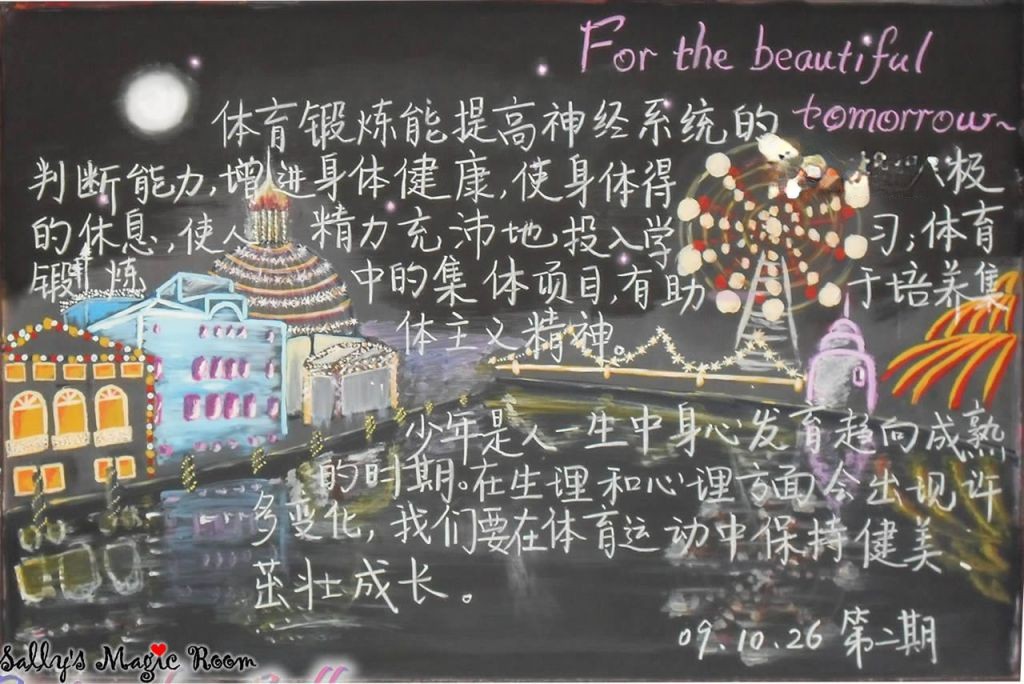 For the beautiful
tomorrow~
体育锻炼能提高神经系统的
判断能力,增进身体健康,使身体得 极
的休息,使人 精力充沛地投入学 习;体育
锻炼 中的集体项目,有助 于培养集
体主义精神。
少年是人一生中身心发育趋向成熟
的时期。在生理和心理方面会出现许
多变化,我们要在体育运动中保持健美、
茁壮成长。
09.10.26 第二期
Sally's Magic Room